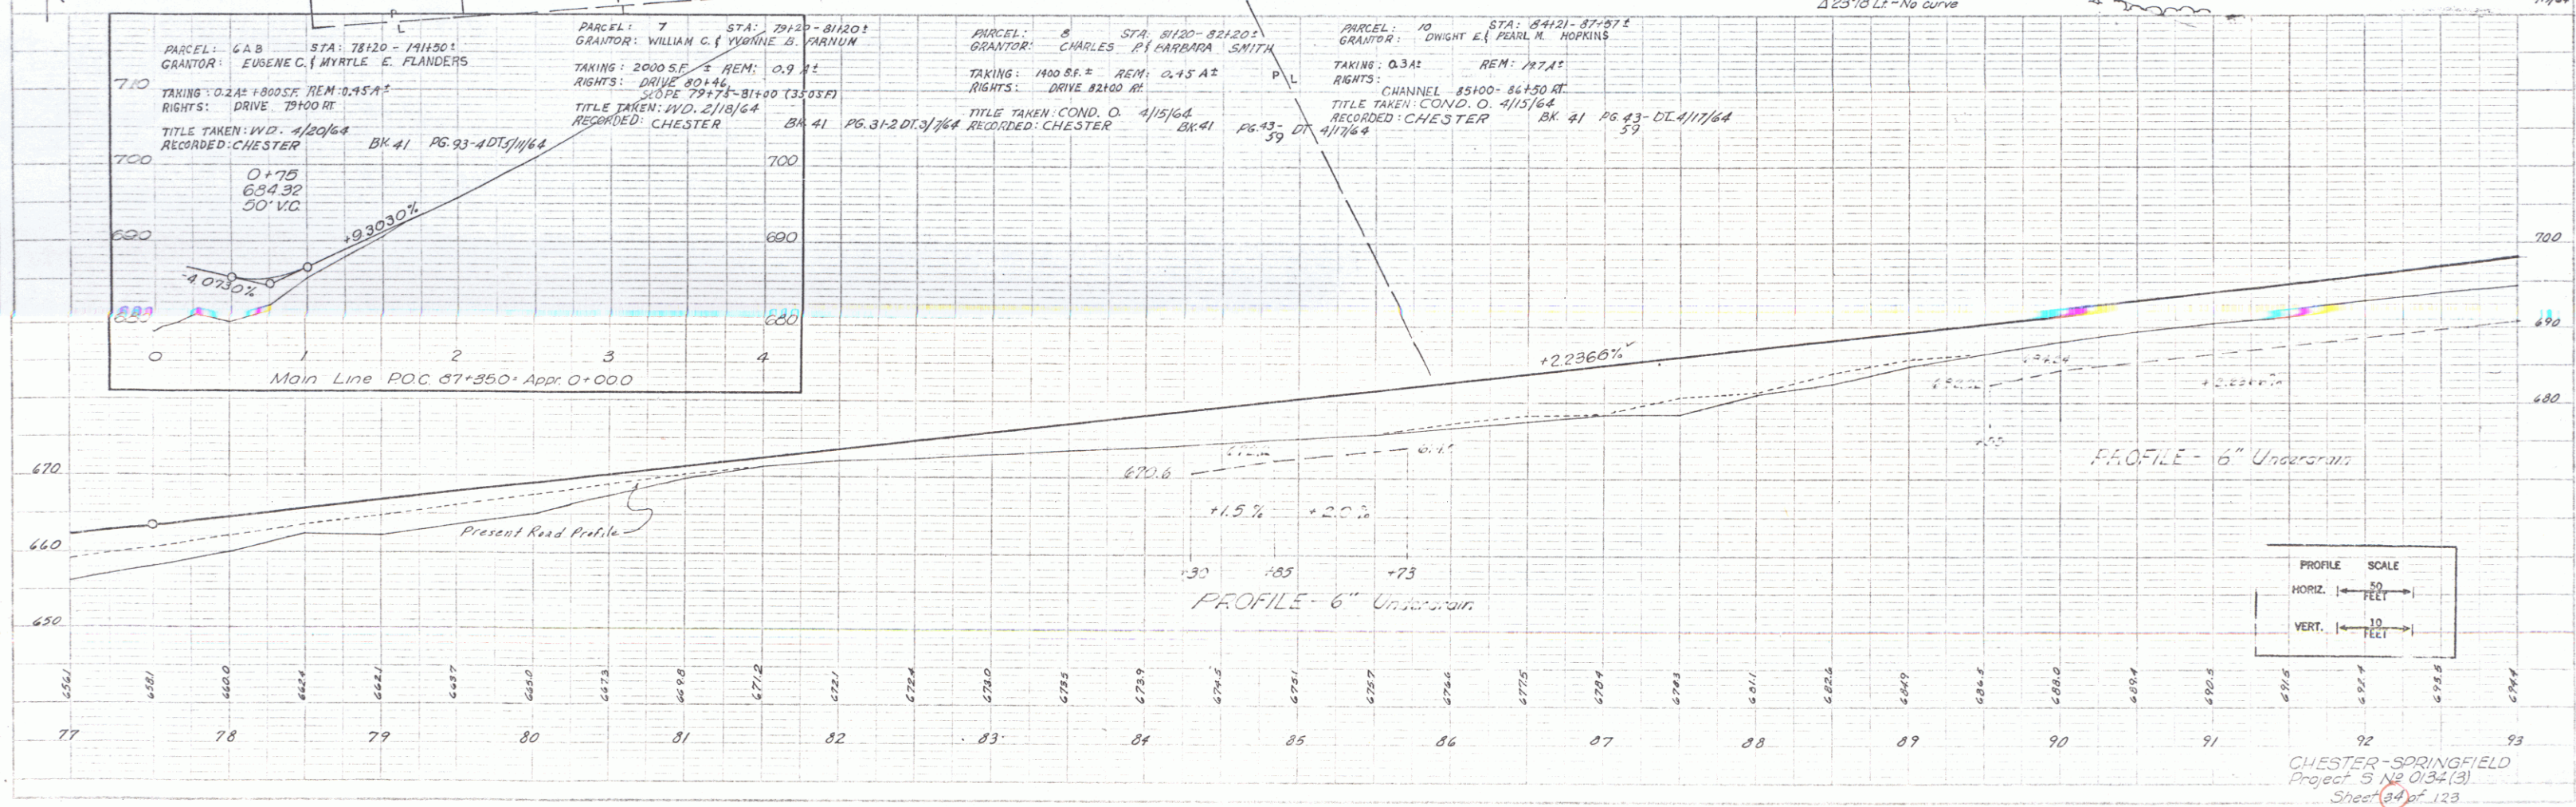 Δ23°18' Lt. - No curve
P
L
PARCEL: 6 A B STA: 78+20 - 141+50±
GRANTOR: EUGENE C. & MYRTLE E. FLANDERS
TAKING: 0.2A± +800 S.F. REM: 0.45A±
RIGHTS: DRIVE 79+00 RT
TITLE TAKEN: W.D. 4/20/64
RECORDED: CHESTER BK 41 PG. 93-4 DT. 5/11/64
PARCEL: 7 STA: 79+20 - 81+20±
GRANTOR: WILLIAM C. & YVONNE B. FARNUM
TAKING: 2000 S.F. ± REM: 0.9 A±
RIGHTS: DRIVE 80+46
SLOPE 79+75-81+00 (350SF)
TITLE TAKEN: W.D. 2/18/64
RECORDED: CHESTER BK 41 PG. 31-2 DT. 3/7/64
PARCEL: 8 STA: 81+20 - 82+20±
GRANTOR: CHARLES P. & BARBARA SMITH
TAKING: 1400 S.F. ± REM: 0.45 A±
RIGHTS: DRIVE 82+00 Rt.
TITLE TAKEN: COND. O. 4/15/64
RECORDED: CHESTER BK. 41 PG. 43-59 DT 4/17/64
P L
PARCEL: 10 STA: 84+21 - 87+57±
GRANTOR: DWIGHT E. & PEARL M. HOPKINS
TAKING: 0.3A± REM: 19.7A±
RIGHTS:
CHANNEL 85+00 - 86+50 RT
TITLE TAKEN: COND. O. 4/15/64
RECORDED: CHESTER BK. 41 PG. 43-59 DT. 4/17/64
710
700 700
690 690
680 680
0+75
684.32
50' V.C.
+9.3030%
-4.0730%
0 1 2 3 4
Main Line P.O.C. 87+35.0 = Appr. 0+00.0
700
690
680
+2.2366%
+2.2366%
PROFILE - 6" Underdrain
670
660
650
Present Road Profile
670.6
+1.5% +2.0%
+30 +85 +73
PROFILE - 6" Underdrain
PROFILE SCALE
HORIZ. 50 FEET
VERT. 10 FEET
656.1 658.1 660.0 662.4 662.1 663.7 665.0 667.3 669.8 671.2 672.1 672.4 673.0 673.5 673.9 674.5 675.1 675.7 676.6 677.5 678.4 678.3 681.1 682.6 684.9 686.5 688.0 689.4 690.5 691.5 692.4 693.5 694.4
77 78 79 80 81 82 83 84 85 86 87 88 89 90 91 92 93
CHESTER-SPRINGFIELD
Project S No 0134(3)
Sheet 34 of 123